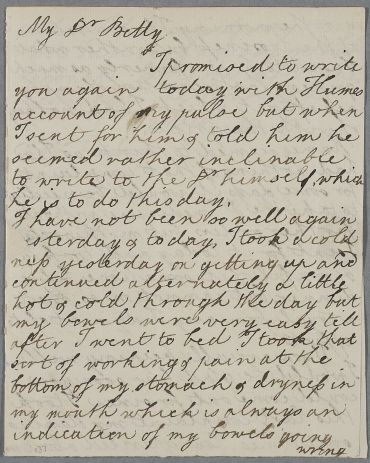 My Dr Betty
I promised to write
you again today with Humes
account of my pulse but when
I sent for him & told him he
seemed rather inclinable
to write to the Dr himself, which
he is to do this day.
I have not been so well again
yesterday & today, I took a cold
ness yesterday on getting up and
continued alternately a little
hot & cold through the day but
my bowels were very easy till
after I went to bed I took that
sort of working & pain at the
bottom of my stomach & dryness in
my mouth which is always an
indication of my bowels going
wrong